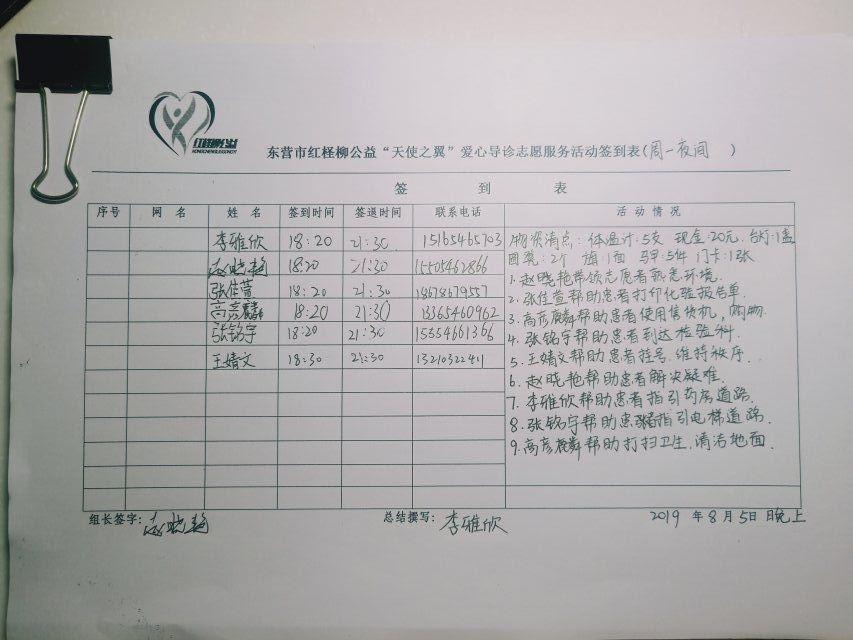 红柽柳公益
HONGCHENGLIUGONGYI
东营市红柽柳公益“天使之翼”爱心导诊志愿服务活动签到表(周一夜间 )
签 到 表
序号 网 名 姓 名 签到时间 签退时间 联系电话 活 动 情 况
李雅欣 18:20 21:30 15165465703
赵晓艳 18:20 21:30 15505462866
张佳萱 18:20 21:30 18678679557
高彦麟 18:20 21:30 13365460962
张铭宇 18:20 21:30 15554661366
王婧文 18:30 21:30 13210322411
物资清点:体温计:5支 现金:20元. 台灯:1盏
图章:2个 旗:1面 马甲:5件 门卡:1张
1. 赵晓艳带领志愿者熟悉环境.
2. 张佳萱帮助患者打印化验报告单.
3. 高彦麟帮助患者使用售货机,购物.
4. 张铭宇帮助患者到达检验科.
5. 王婧文帮助患者挂号.维持秩序.
6. 赵晓艳帮助患者解决疑难.
7. 李雅欣帮助患者指引药房道路.
8. 张铭宇帮助患者指引电梯道路.
9. 高彦麟帮助打扫卫生,清洁地面.
组长签字:赵晓艳 总结撰写:李雅欣 2019 年 8 月 5 日 晚上